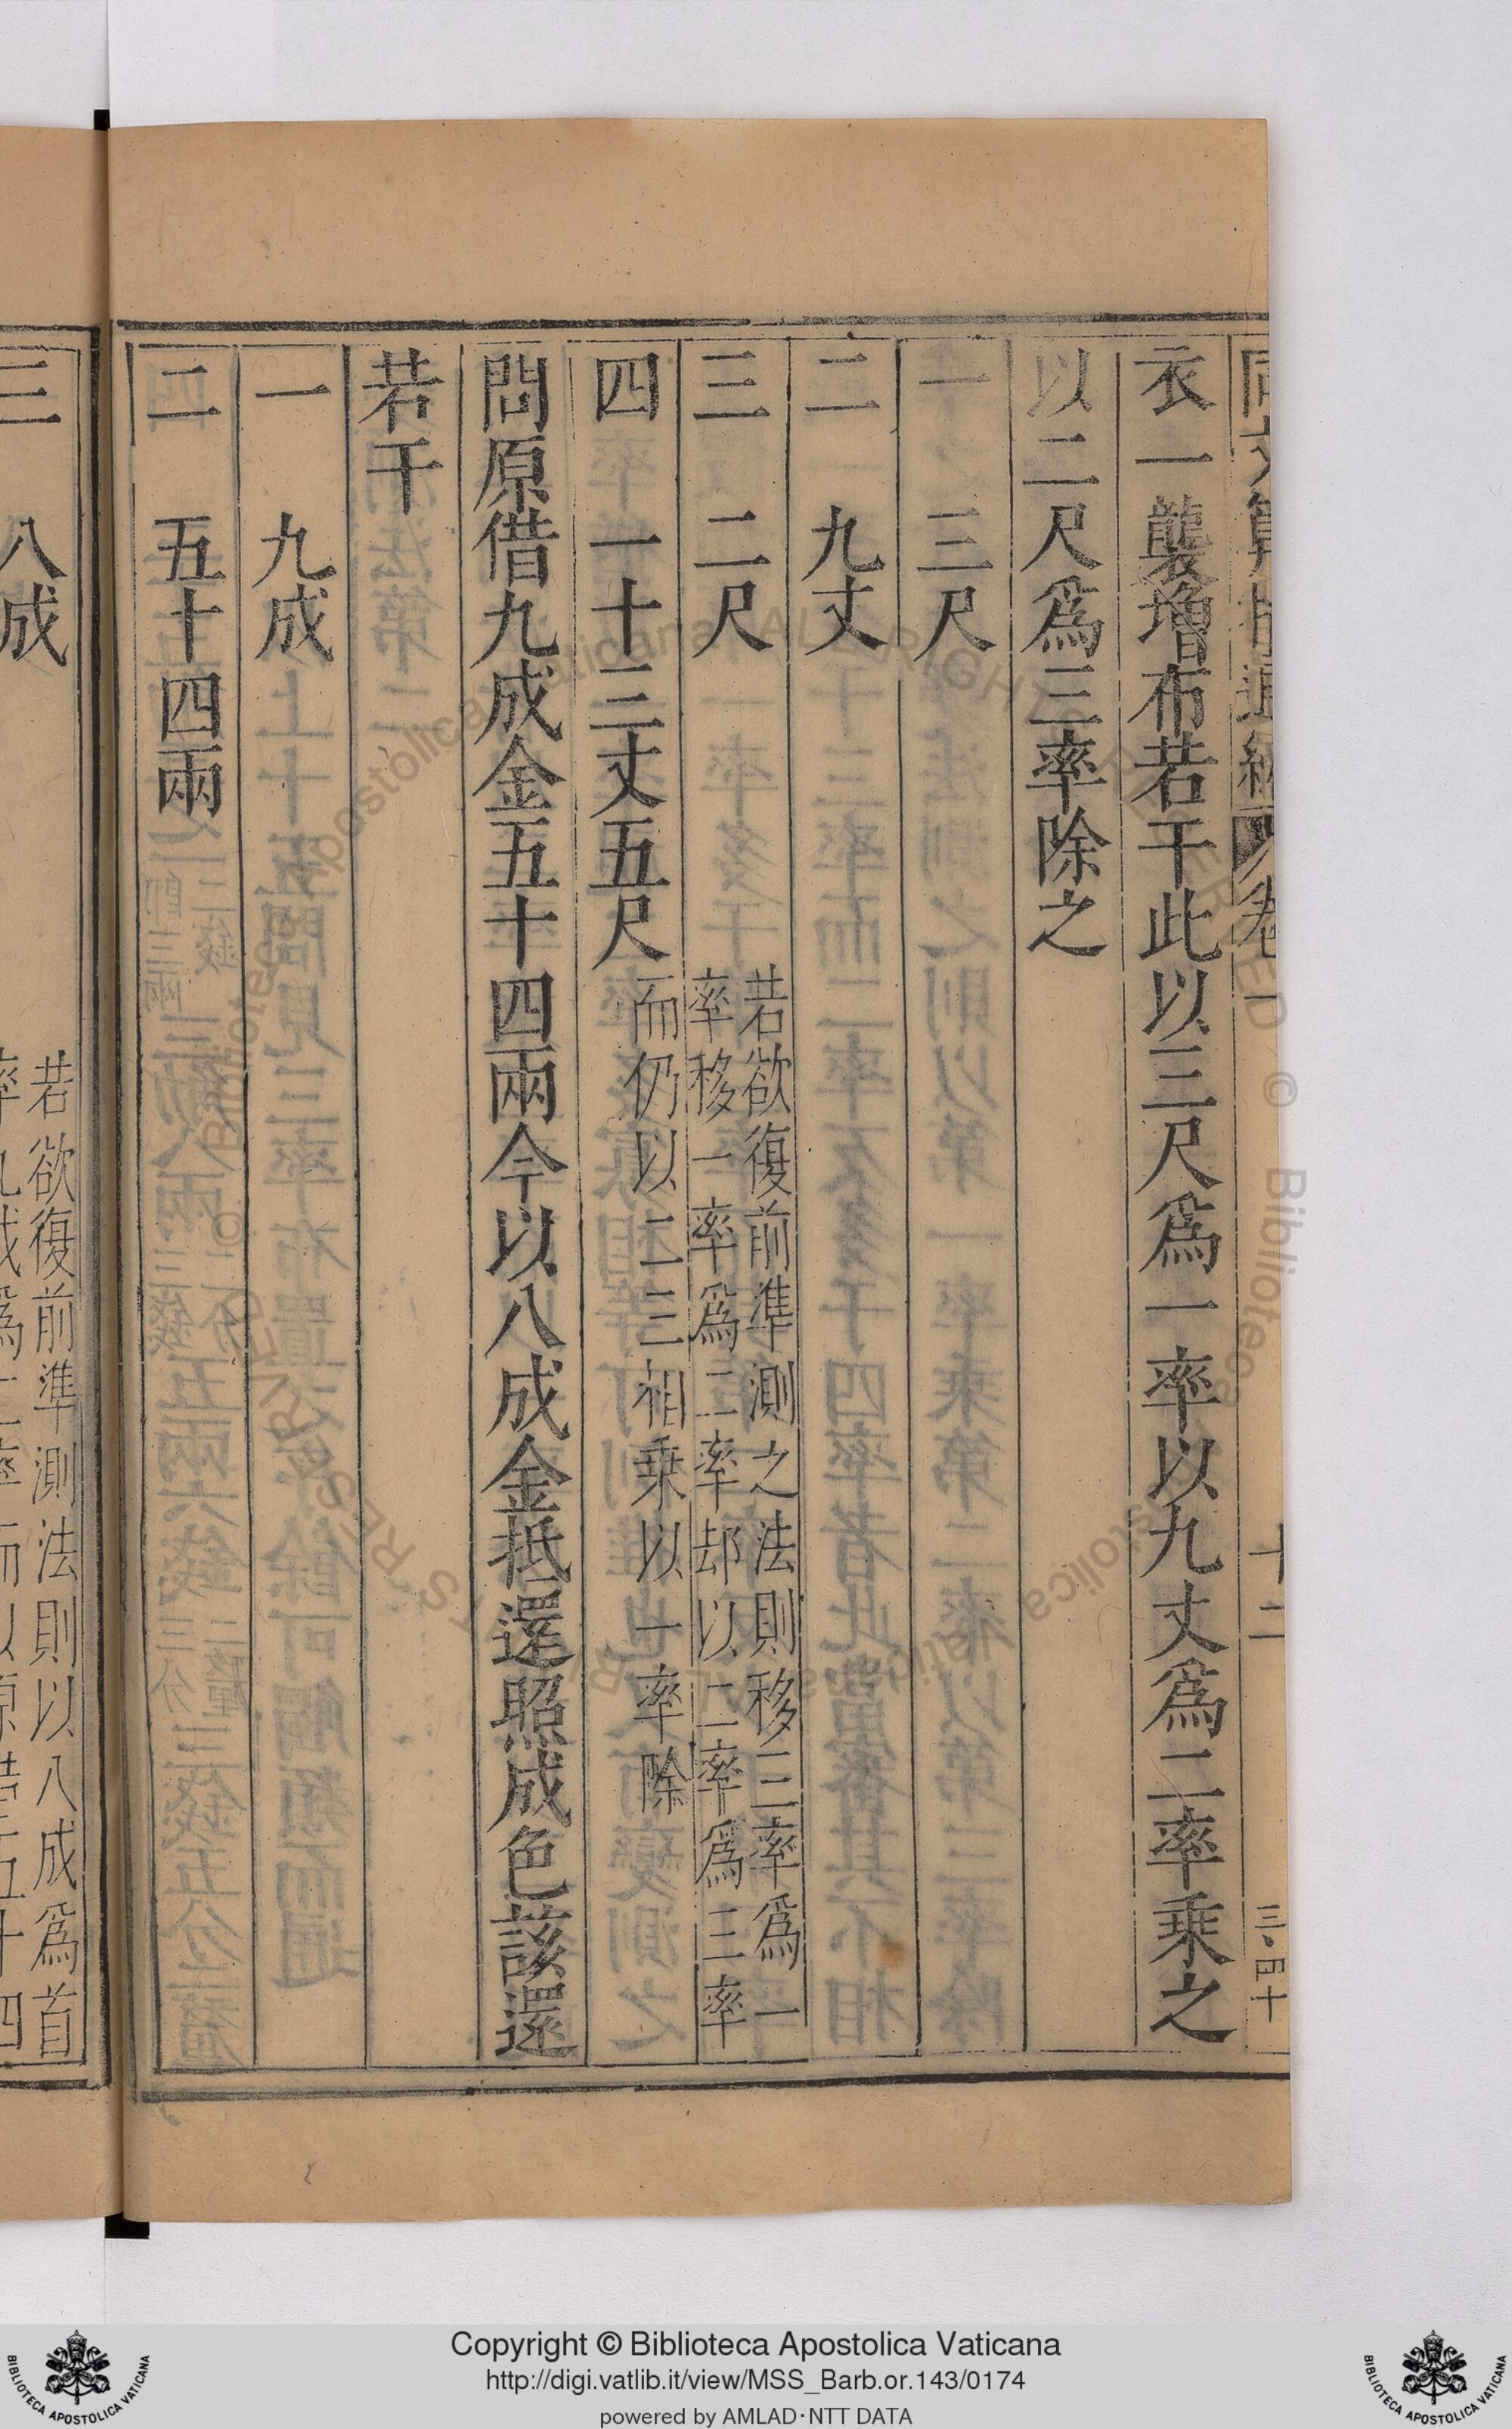 同文算指通編 卷一 十二 三、四十
衣一襲增布若干此以三尺爲一率以九丈爲二率乘之
以二尺爲三率除之
一 三尺
二 九丈
三 二尺
四 一十三丈五尺
若欲復前準測之法則移三率爲一
率移一率爲二率却以二率爲三率
而仍以二三相乘以一率除
問原借九成金五十四兩今以八成金抵還照成色該還
若干
一 九成
二 五十四兩
三 八成
若欲復前準測法則以八成爲首
Copyright © Biblioteca Apostolica Vaticana
http://digi.vatlib.it/view/MSS_Barb.or.143/0174
powered by AMLAD·NTT DATA
BIBLIOTECA APOSTOLICA VATICANA
BIBLIOTECA APOSTOLICA VATICANA